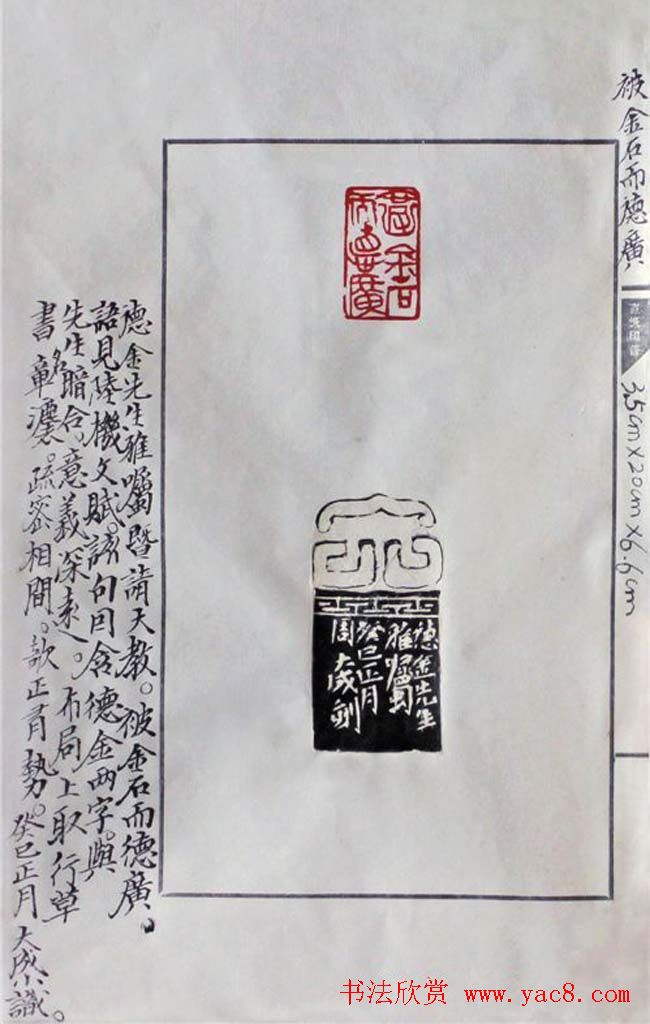 被金石而德廣
3.5cm×2.0cm×6.6cm
被金石
而德廣
德金先生
雅囑
癸巳正月
周大成刻
德金先生雅囑暨請天教。被金石而德廣。
語見陸機文賦。該句因含德金兩字。與
先生名暗合。意義深遠。布局上取行草
書章法。疏密相間。欹正有勢。癸巳正月 大成識。
书法欣赏 www.yac8.com